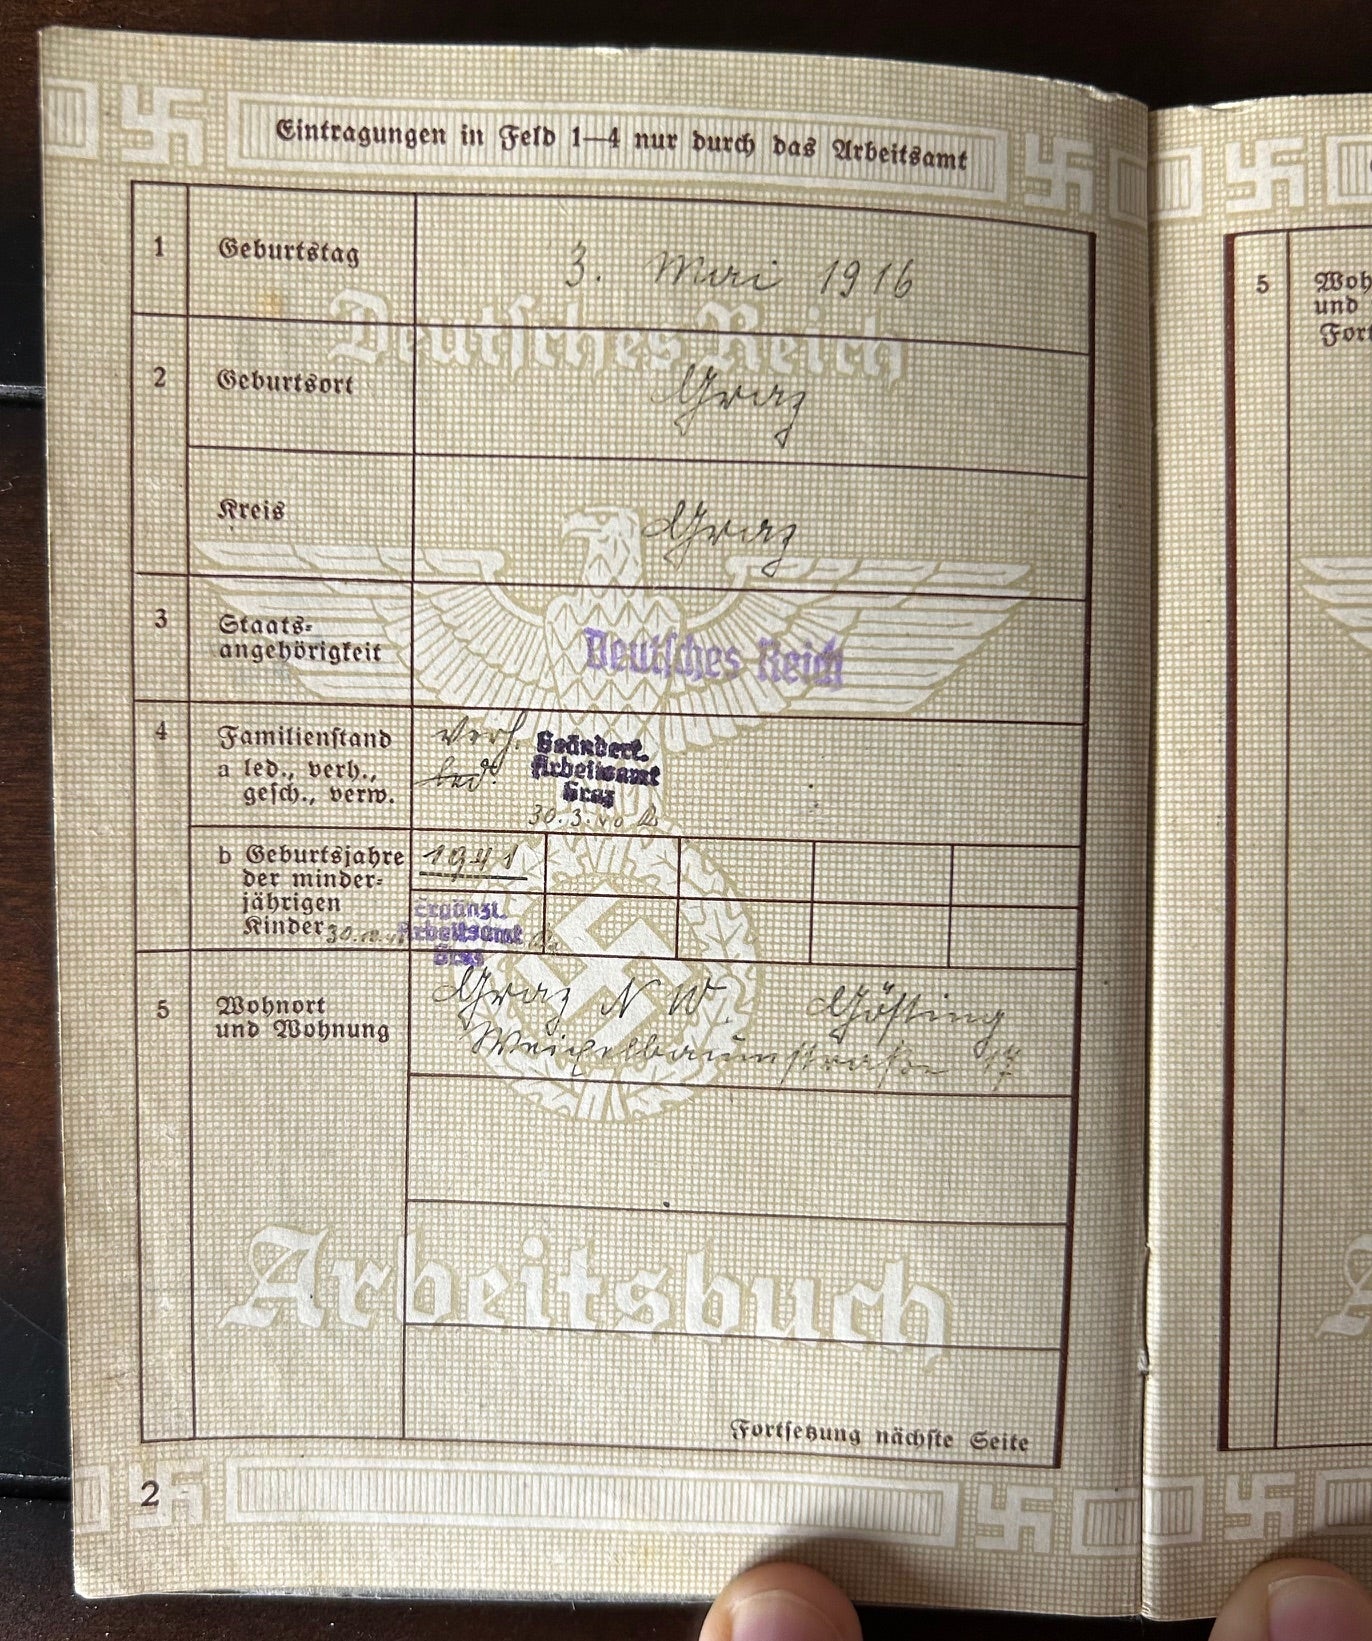 Eintragungen in Feld 1—4 nur durch das Arbeitsamt
1 Geburtstag 3. Mai 1916
Deutsches Reich
2 Geburtsort Graz
Kreis Graz
3 Staats=
angehörigkeit
Deutsches Reich
4 Familienstand
a led., verh.,
gesch., verw.
verh.
led.
Geändert.
Arbeitsamt
Graz
30.3.40
b Geburtsjahre
der minder=
jährigen
Kinder
1941
Ergänzt.
Arbeitsamt
Graz
5 Wohnort
und Wohnung
Graz N W. Gösting
Weixelbaumstraße 17
Arbeitsbuch
Fortsetzung nächste Seite
2
5 Woh
und
Fort